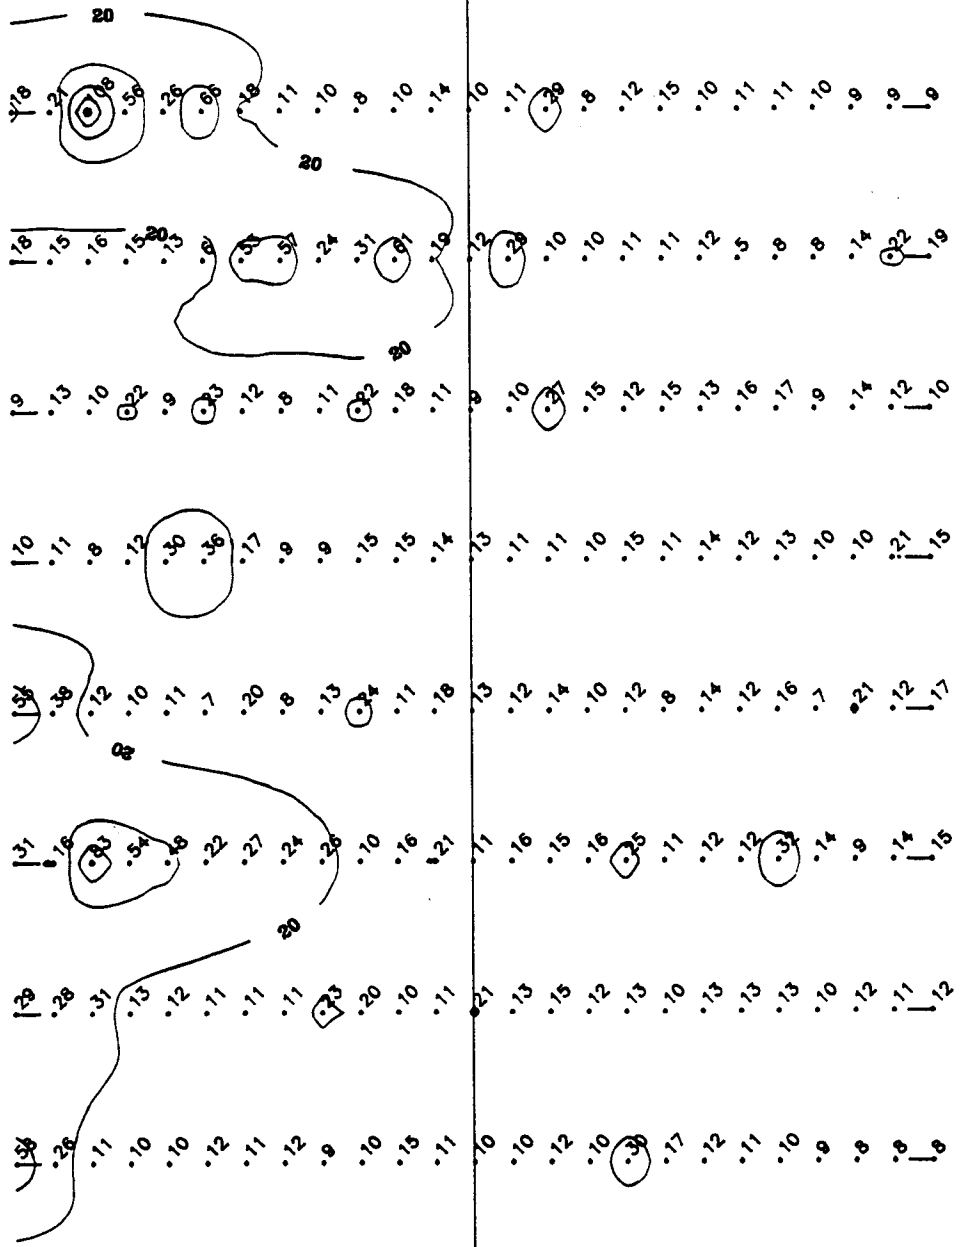 20
18 21 08 56 26 65 18 11 10 8 10 14 10 11 29 8 12 15 10 11 11 10 9 9 9
20
20
18 15 16 15 13 6 53 57 24 31 61 19 12 29 10 10 11 11 12 5 8 8 14 22 19
20
9 13 10 22 9 23 12 8 11 22 18 11 9 10 27 15 12 15 13 16 17 9 14 12 10
10 11 8 12 30 36 17 9 9 15 15 14 13 11 11 10 15 11 14 12 13 10 10 21 15
38 12 10 11 7 20 8 13 24 11 18 13 12 14 10 12 8 14 12 16 7 21 12 17
20
31 16 83 54 48 22 27 24 26 10 16 21 11 16 15 16 25 11 12 12 32 14 9 14 15
20
29 28 31 13 12 11 11 11 23 20 10 11 21 13 15 12 13 10 13 13 13 10 12 11 12
26 11 10 10 12 11 12 9 10 15 11 10 10 12 10 30 17 12 11 10 9 8 8 8